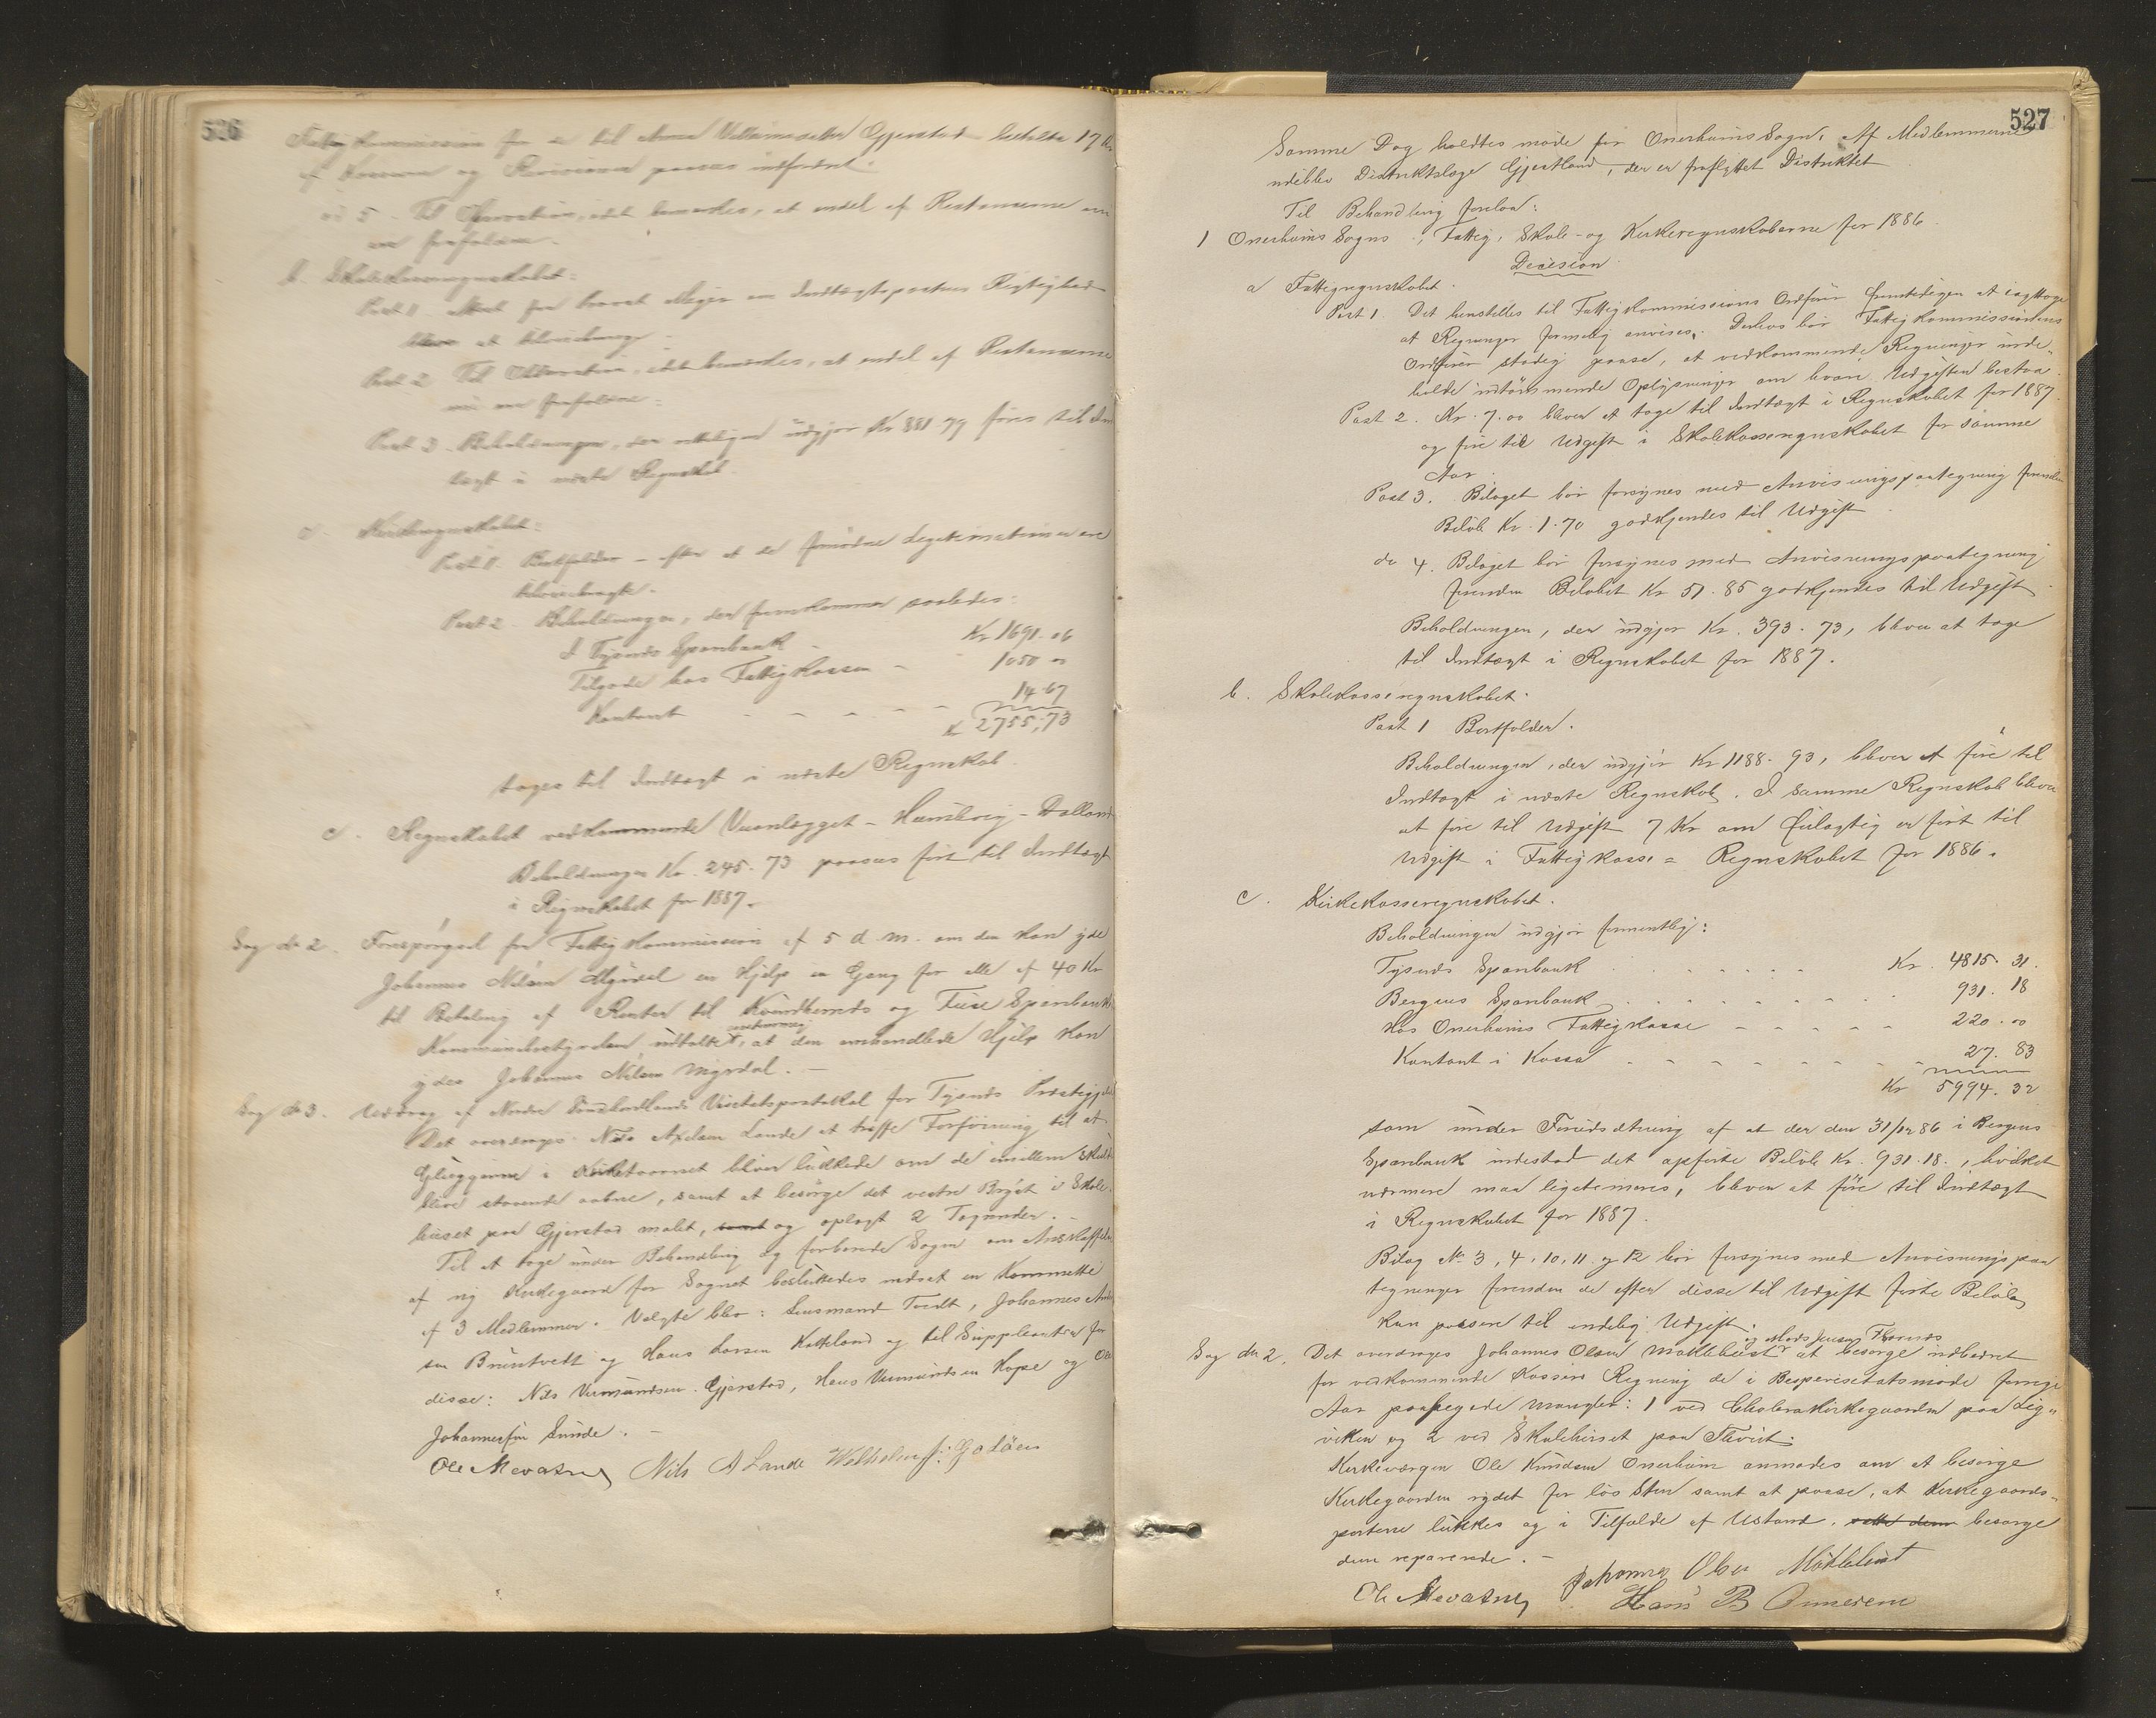 526
Fattigkommissionen for de til Anna Villumsdatter Gjerstad betalte 17 Kr
af Kassen og Revisionen paases indfordret.
ad 5. Til Observation, idet bemærkes, at endel af Restancerne
er frafaldne.
b. Skolekasseregnskabet:
Post 1. Attest fra Meyer om Indtægtspostens Rigtighed
bliver at tilveiebringe.
Post 2. Til Observation, idet bemærkes, at endel af Restancerne
nu er frafaldne.
Post 3. Beholdningen, der udgjør Kr 881.79 føres til Ind
tægt i næste Regnskab.
c. Kirkeregnskabet:
Post 1. Bortfalder - efter at de fornødne Legitimationer ere
tilveiebragte.
Post 2. Beholdningen, der fremkommer saaledes:
I Tysnes Sparebank Kr 1691.06
Tilgode hos Fattigkassen - 1050 00
Kontant - - - - 14.67
Kr 2755.73
tages til Indtægt i næste Regnskab.
d. Regnskabet vedkommende Veianlægget - Humlevig - Dalland
Beholdningen Kr. 245.73 paasees ført til Indtægt
i Regnskabet for 1887.
Sag No 2. Forespørgsel fra Fattigkommissionen af 5 d. M. om den kan yde
Johannes Nilsen Myrdal en Hjelp en Gang for alle af 40 Kr
til Betaling af Renter til Kvindherreds og Fuse Sparebank
Kommunebestyrelsen udtalte, at den omhandlede Hjelp kan
ydes Johannes Nilsen Myrdal. -
Sag No 3. Uddrag af Nordre Søndhordlands Visitatsprotokol for Tysnes Præstegjeld
Det overdroges Nils Axelsen Lande at træffe Forføining til at
Gluggerne i Kirketaarnet bliver lukkede om de imellem skulde
blive staaende aabne, samt at besørge det vestre Bryst i Skole-
huset paa Gjerstad malet, samt og oplagt 2 Tagrender. -
Til at tage under Behandling og forberede Sagen om Anskaffelse
af ny Kirkegaard for Sognet besluttedes nedsat en Kommitte
af 3 Medlemmer. Valgte blev: Lensmand Tvedt, Johannes
sen Bruntvett og Hans Larsen Kalteland og til Suppleanter for
disse: Nils Vermundsen Gjerstad, Hans Vermundsen Hope og Ole
Johannessen Sunde. -
Ole Mevatne Nils A Lande
527
Samme Dag holdtes møde for Onerheims Sogn. Af Medlemmerne
udeblev Distriktslæge Gjestland, der er fraflyttet Distriktet
Til Behandling forelaa:
1 Onerheims Sogns Fattig, Skole- og Kirkeregnskaberne for 1886
Decision
a Fattigregnskabet.
Post 1. Det henstilles til Fattigkommissionens Ordfører fremtidigen at iagttage
at Regninger formelig anvises. Derhos bør Fattigkommissionens
Ordfører stadig paase, at vedkommende Regninger inde-
holde udtømmende Oplysninger om hvori Udgiften bestaar.
Post 2. Kr. 7.00 bliver at tage til Indtægt i Regnskabet for 1887
og føre til Udgift i Skolekasseregnskabet for samme
Aar.
Post 3. Bilaget bør forsynes med Anvisningspaategning forinden
Beløb Kr. 1.70 godkjendes til Udgift
do 4. Bilaget bør forsynes med Anvisningspaategning
forinden Beløbet Kr 51.85 godkjendes til Udgift
Beholdningen, der udgjør Kr. 393.73, bliver at tage
til Indtægt i Regnskabet for 1887.
b. Skolekasseregnskabet.
Post 1 Bortfalder.
Beholdningen, der udgjør Kr 1188.93, bliver at føre til
Indtægt i næste Regnskab. I samme Regnskab bliver
at føre til Udgift 7 Kr som feilagtig er ført til
Udgift i Fattigkasse = Regnskabet for 1886.
c. Kirkekasseregnskabet.
Beholdningen udgjør formentlig:
Tysnes Sparebank Kr. 4815.31.
Bergens Sparebank 931.18
Hos Onerheims Fattigkasse - - - - - 220.00
Kontant i Kassa - - - - - - - 27.83
Kr 5994.32
som under Forudsætning af at der den 31/12 86 i Bergens
Sparebank indestod det opførte Beløb Kr. 931.18., hvilket
nærmere maa ligitimeres, bliver at føre til Indtægt
i Regnskabet for 1887.
Bilag No 3, 4, 10, 11 og 12 bør forsynes med Anvisningspaa
tegninger forinden de efter disse til Udgift førte Beløb
kan passere til endelig Udgift.
og Mads Jensen Flornæs
Sag No 2. Det overdroges Johannes Olsen Møklebust at besørge udbedret
for vedkommende Kassers Regning de i Bispevisitatsmøde forrige
Aar paapegede Mangler: 1 ved Cholerakirkegaarden paa Lig-
viken og 2 ved Skolehuset paa Thveit.
Kirkeværgen Ole Knudsen Onerheim anmodes om at besørge
Kirkegaarden rydet for løs Sten samt at paase, at Kirkegaards-
portene lukkes og i Tilfælde af Ustand. besørge
dem reparerede. -
Ole Mevatne Johannes Olsen Møklebust
Hans B